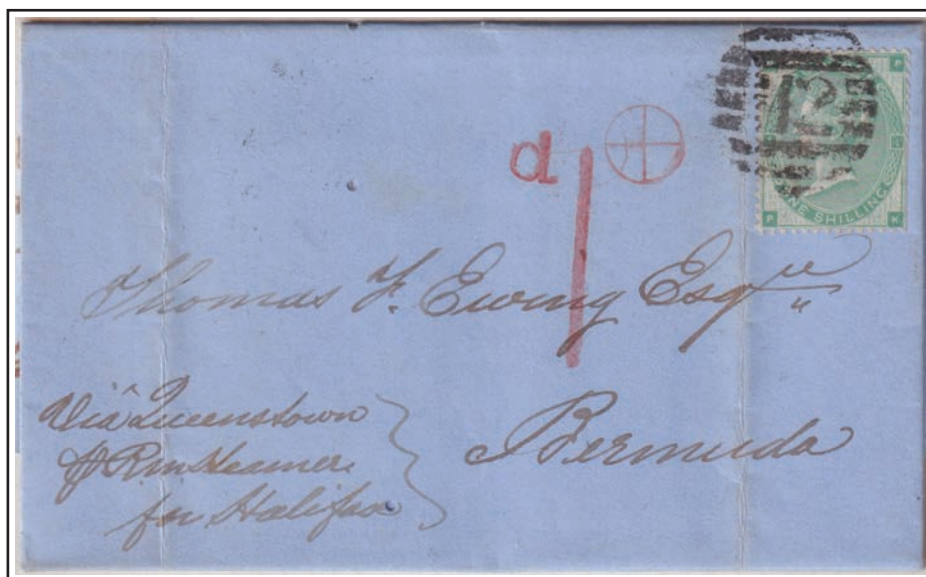 12
P
K
ONE SHILLING
d 1
Thomas F. Ewing Esqre
Via Queenstown
p RM Steamer
for Halifax
Bermuda